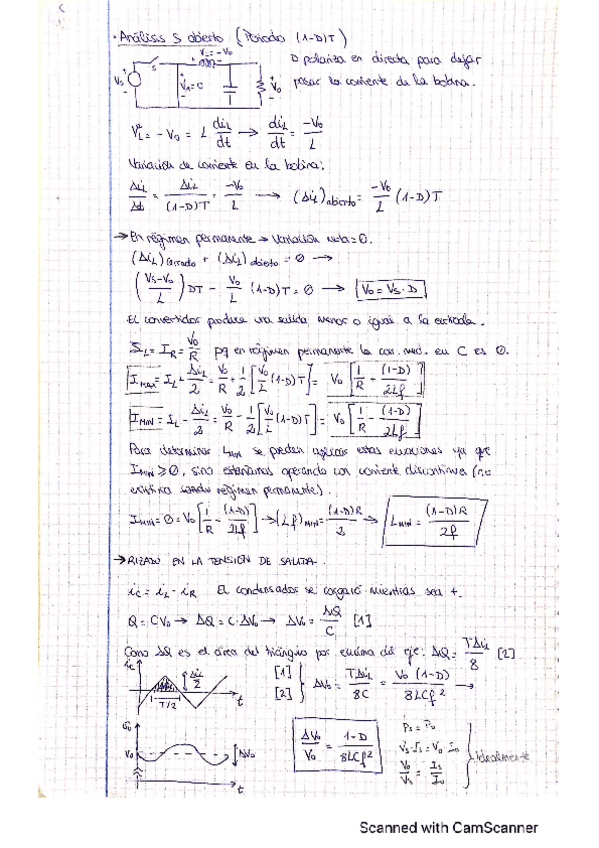 · Análisis S abierto (Periodo (1-D)T)
V_L = -V_o
S
V_s
V_o
D polariza en directa para dejar
pasar la corriente de la bobina.
V_L = -V_o = L di_L/dt → di_L/dt = -V_o/L
Variación de corriente en la bobina:
Δi_L/Δt = Δi_L/(1-D)T = -V_o/L → (Δi_L)abierto = -V_o/L (1-D)T
→ En régimen permanente → Variación neta = 0.
(Δi_L)cerrado + (Δi_L)abierto = 0 →
((V_s-V_o)/L) DT - V_o/L (1-D)T = 0 → V_o = V_s · D
El convertidor produce una salida menor o igual a la entrada.
I_L = I_R = V_o/R pq en régimen permanente la cor. med. en C es 0.
I_MAX = I_L + Δi_L/2 = V_o/R + 1/2 [V_o/L (1-D)T] = V_o [1/R - (1-D)/2Lf]
I_MIN = I_L - Δi_L/2 = V_o/R - 1/2 [V_o/L (1-D)T] = V_o [1/R - (1-D)/2Lf]
Para determinar L_MIN se pueden aplicar estas ecuaciones ya que
I_MIN ≥ 0, sino estaríamos operando con corriente discontinua (no
existiría régimen permanente).
I_MIN = 0 = V_o [1/R - (1-D)/2Lf] → (Lf)_MIN = (1-D)R/2 → L_MIN = (1-D)R/2f
→ RIZADO EN LA TENSIÓN DE SALIDA.
i_C = i_L - i_R El condensador se cargará mientras sea +.
Q = CV_o → ΔQ = C·ΔV_o → ΔV_o = ΔQ/C [1]
Como ΔQ es el área del triángulo por encima del eje: ΔQ = TΔi_L/8 [2]
i_C
Δi_L/2
T/2
t
[1]
[2]
ΔV_o = TΔi_L/8C = V_o (1-D)/8LCf² →
V_o
ΔV_o
t
ΔV_o/V_o = 1-D/8LCf²
P_s = P_o
V_s·I_s = V_o I_o
V_o/V_s = I_s/I_o
Idealmente
Scanned with CamScanner